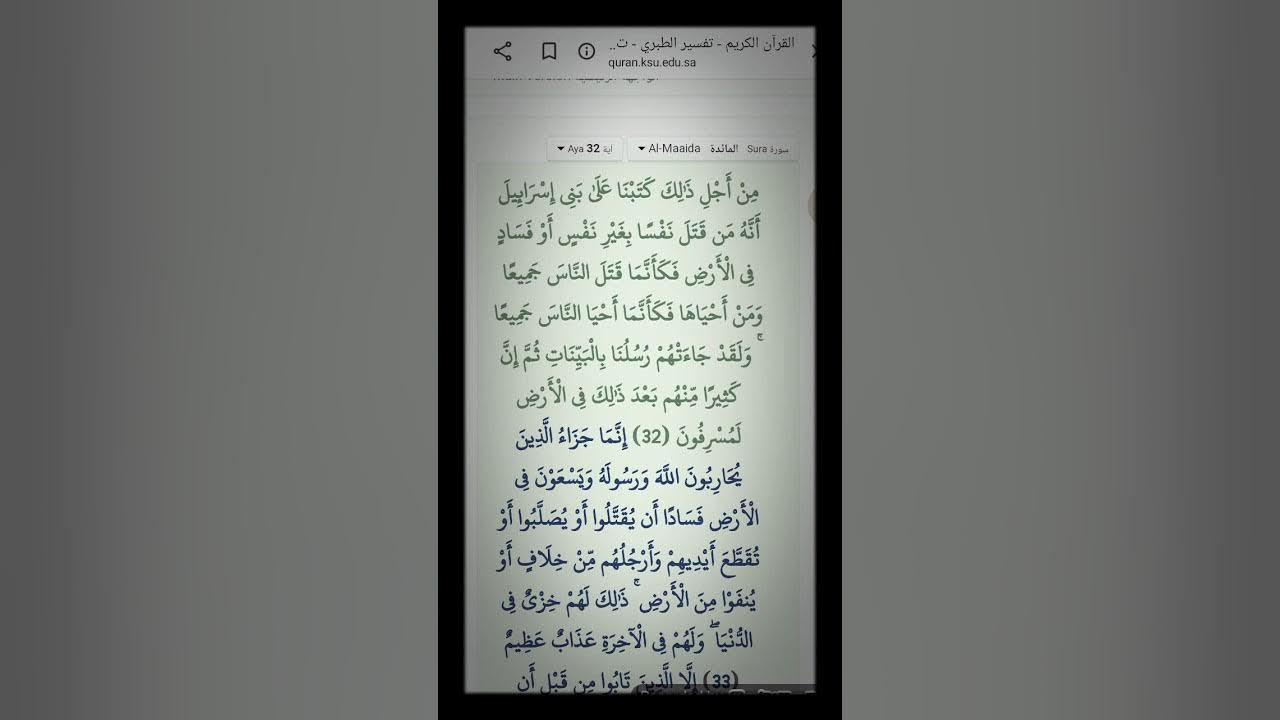 القرآن الكريم - تفسير الطبري - ت..
quran.ksu.edu.sa
سورة Sura المائدة Al-Maaida
آية Aya 32
مِنْ أَجْلِ ذَٰلِكَ كَتَبْنَا عَلَىٰ بَنِي إِسْرَائِيلَ
أَنَّهُ مَن قَتَلَ نَفْسًا بِغَيْرِ نَفْسٍ أَوْ فَسَادٍ
فِي الْأَرْضِ فَكَأَنَّمَا قَتَلَ النَّاسَ جَمِيعًا
وَمَنْ أَحْيَاهَا فَكَأَنَّمَا أَحْيَا النَّاسَ جَمِيعًا
ۚ وَلَقَدْ جَاءَتْهُمْ رُسُلُنَا بِالْبَيِّنَاتِ ثُمَّ إِنَّ
كَثِيرًا مِّنْهُم بَعْدَ ذَٰلِكَ فِي الْأَرْضِ
لَمُسْرِفُونَ (32) إِنَّمَا جَزَاءُ الَّذِينَ
يُحَارِبُونَ اللَّهَ وَرَسُولَهُ وَيَسْعَوْنَ فِي
الْأَرْضِ فَسَادًا أَن يُقَتَّلُوا أَوْ يُصَلَّبُوا أَوْ
تُقَطَّعَ أَيْدِيهِمْ وَأَرْجُلُهُم مِّنْ خِلَافٍ أَوْ
يُنفَوْا مِنَ الْأَرْضِ ۚ ذَٰلِكَ لَهُمْ خِزْيٌ فِي
الدُّنْيَا ۖ وَلَهُمْ فِي الْآخِرَةِ عَذَابٌ عَظِيمٌ
(33) إِلَّا الَّذِينَ تَابُوا مِن قَبْلِ أَن